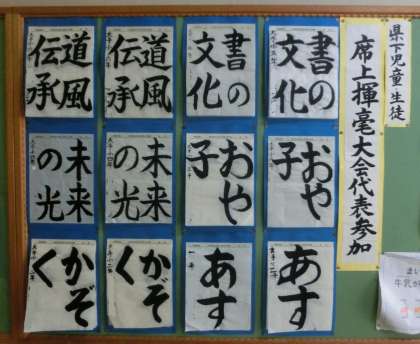 県下児童生徒
席上揮毫大会代表参加
書の
文化
書の
文化
道風
伝承
道風
伝承
おや
子
おや
子
未来
の光
未来
の光
あす
あす
かぞ
く
かぞ
く